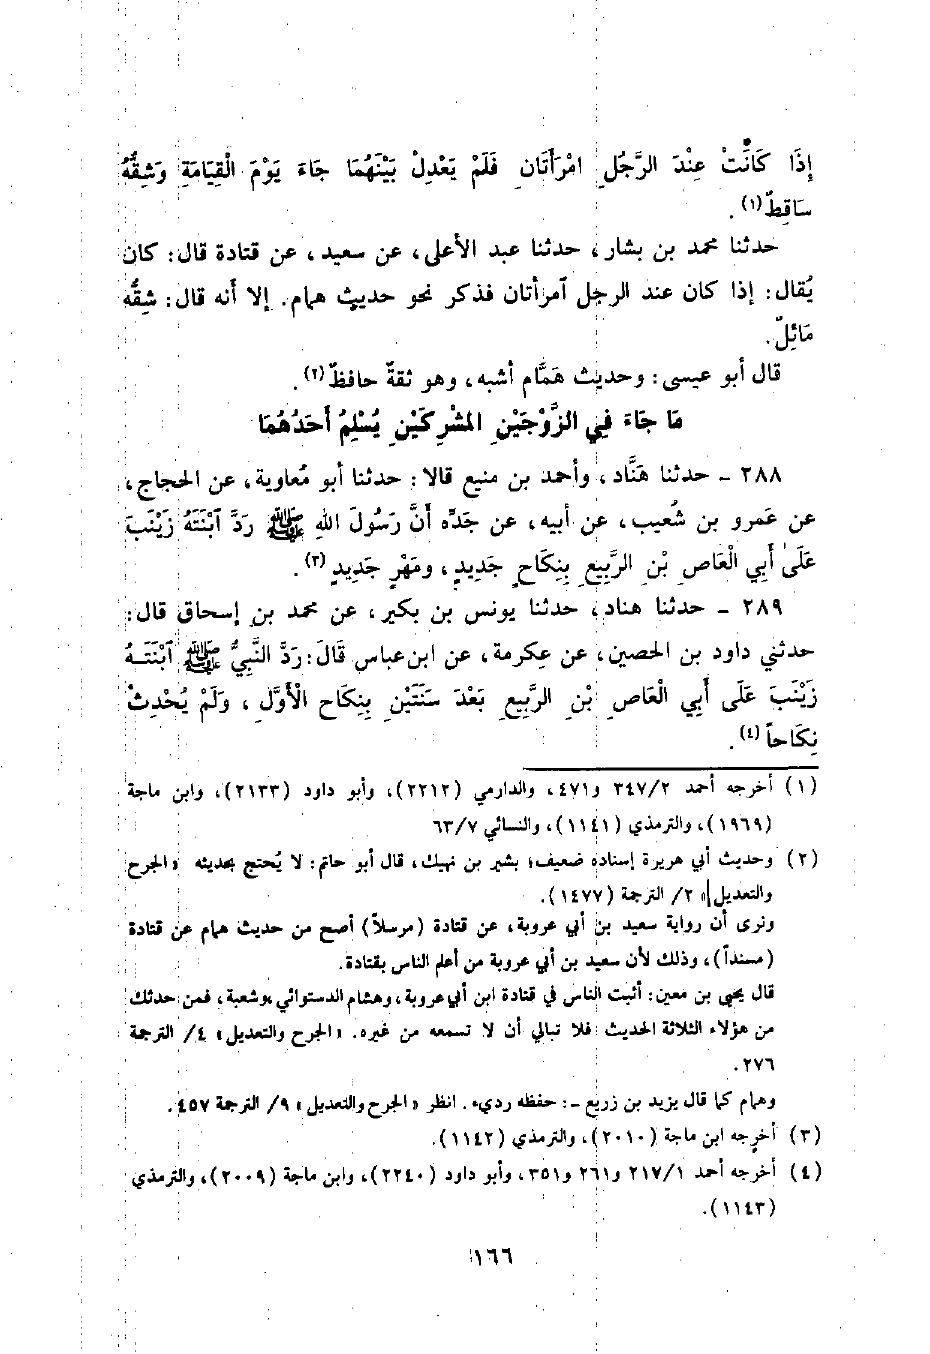 إِذَا كَانَتْ عِنْدَ الرَّجُلِ امْرَأَتَانِ فَلَمْ يَعْدِلْ بَيْنَهُمَا جَاءَ يَوْمَ الْقِيَامَةِ وَشِقُّهُ
سَاقِطٌ(١) .
حدثنا محمد بن بشار، حدثنا عبد الأعلى، عن سعيد، عن قتادة قال: كان
يُقال: إذا كان عند الرجل آمرأتان فذكر نحو حديث همام. إلا أنه قال: شِقُّه
مَائِلٌ.
قال أبو عيسى: وحديث هَمَّام أشبه، وهو ثقةٌ حافظٌ(٢) .
مَا جَاءَ فِي الزَّوْجَيْنِ المشْرِكَيْنِ يُسْلِمُ أَحَدُهُمَا
٢٨٨ - حدثنا هَنَّاد، وأحمد بن منيع قالا: حدثنا أبو مُعاوية، عن الحجاج،
عن عَمرو بن شُعيب، عن أبيه، عن جَدِّه أَنَّ رَسُولَ اللهِ ﷺ رَدَّ آبْنَتَهُ زَيْنَبَ
عَلَىٰ أَبِي الْعَاصِ بْنِ الرَّبِيعِ بِنِكَاحٍ جَدِيدٍ، ومَهْرٍ جَدِيدٍ(٣) .
٢٨٩ - حدثنا هناد، حدثنا يونس بن بكير، عن محمد بن إسحاق قال:
حدثني داود بن الحصين، عن عِكرمة، عن ابن عباس قَالَ: رَدَّ النَّبِيُّ ﷺ آبْنَتَـهُ
زَيْنَبَ عَلَى أَبِي الْعَاصِ بْنِ الرَّبِيعِ بَعْدَ سَنَتَيْنِ بِنِكَاحِ الْأَوَّلِ، وَلَمْ يُحْدِثْ
نِكَاحاً(٤) .
(١) أخرجه أحمد ٣٤٧/٢ و٤٧١، والدارمي (٢٢١٢)، وأبو داود (٢١٣٣)، وابن ماجة
(١٩٦٩)، والترمذي (١١٤١)، والنسائي ٦٣/٧
(٢) وحديث أبي هريرة إسناده ضعيف؛ بشير بن نهيك، قال أبو حاتم: لا يُحتج بحديثه «الجرح
والتعديل» ٢/ الترجمة (١٤٧٧).
ونرى أن رواية سعيد بن أبي عروبة، عن قتادة (مرسلاً) أصح من حديث همام عن قتادة
(مسنداً)، وذلك لأن سعيد بن أبي عروبة من أعلم الناس بقتادة.
قال يحيى بن معين: أثبت الناس في قتادة ابن أبي عروبة، وهشام الدستوائي، وشعبة، فمن حدثك
من هؤلاء الثلاثة الحديث فلا تبالي أن لا تسمعه من غيره. «الجرح والتعديل» ٤/ الترجمة
٢٧٦.
وهمام كما قال يزيد بن زريع -: حفظه ردي». انظر «الجرح والتعديل» ٩/ الترجمة ٤٥٧.
(٣) أخرجه ابن ماجة (٢٠١٠)، والترمذي (١١٤٢).
(٤) أخرجه أحمد ٢١٧/١ و٢٦١ و٣٥١، وأبو داود (٢٢٤٠)، وابن ماجة (٢٠٠٩)، والترمذي
(١١٤٣).
١٦٦